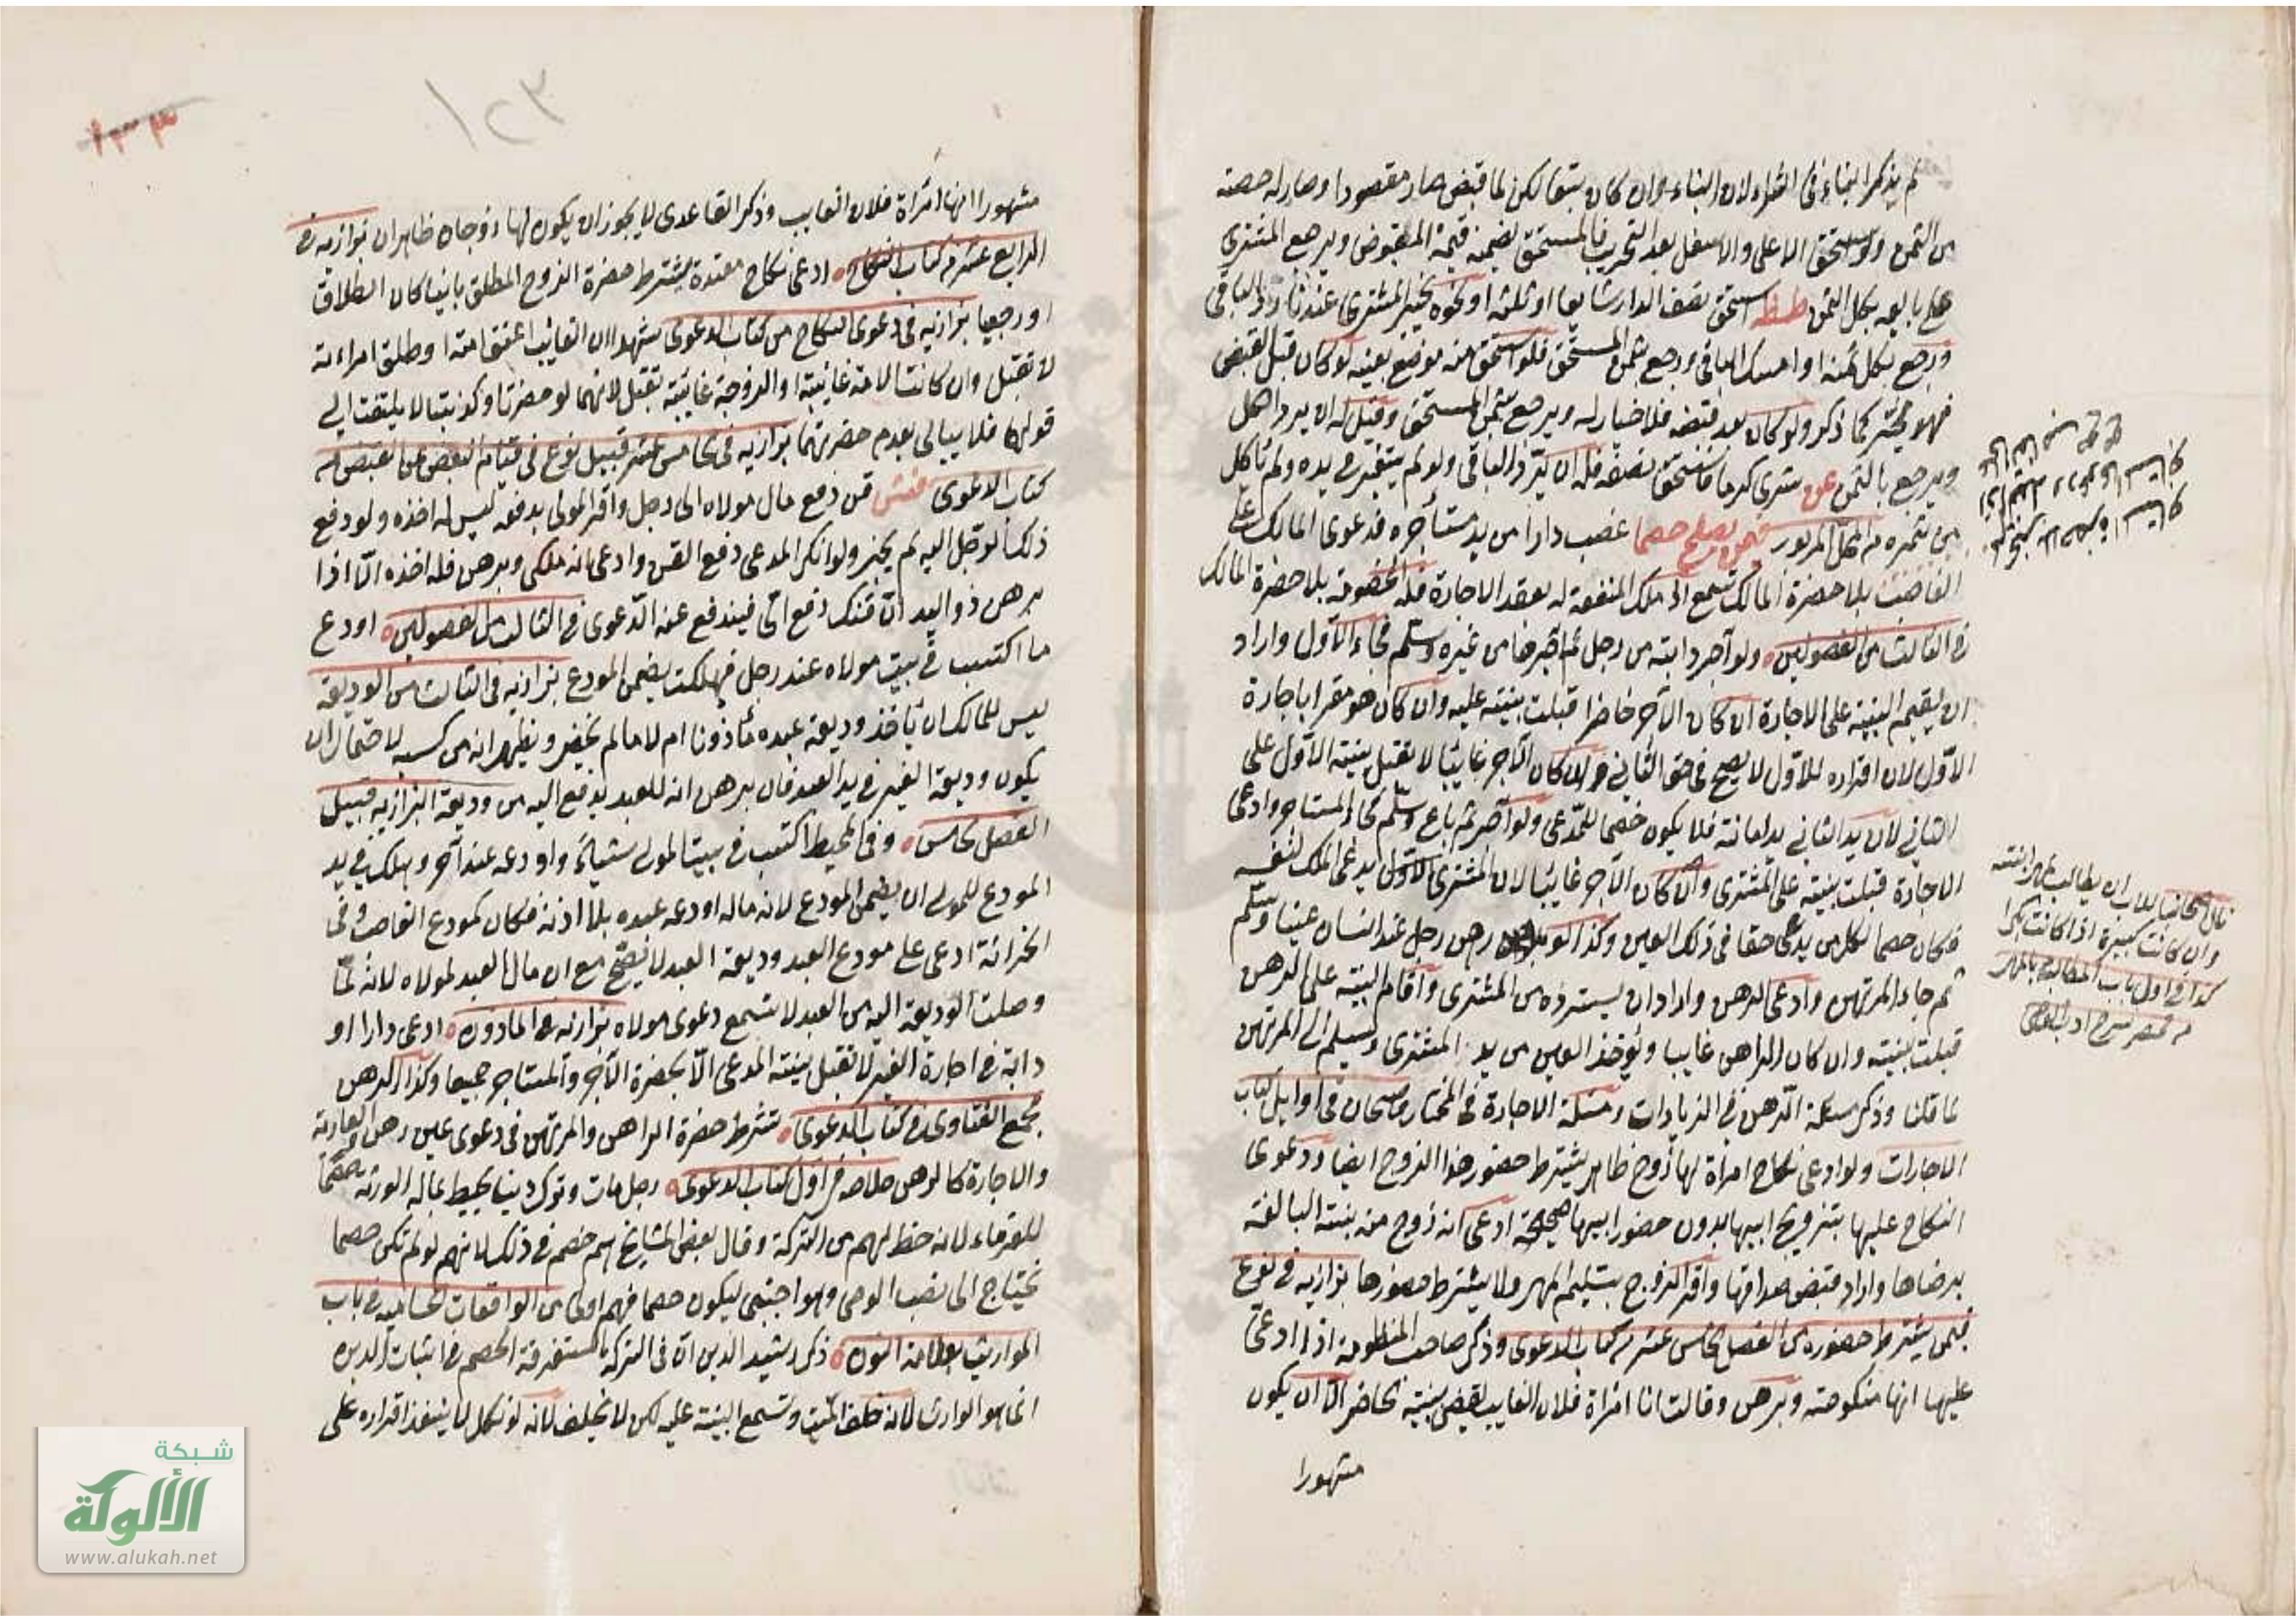 لم يذكر البناء في الشراء لان البناء وان كان تبعا لكن لما قبض صار مقصودا وصار له حصة
من الثمن ولو استحق الاعلى والاسفل بعد التخريب فالمستحق يضمنه قيمة المقبوض ويرجع المشتري
على بايعه بكل الثمن استحق نصف الدار شايعا او ثلثه او نحوه يخير المشتري عندنا رد الباقي
ورجع بكل ثمنه او امسك الباقي ورجع بثمن المستحق فلو استحق منه موضع بعينه لو كان قبل القبض
فهو مخير كما ذكر ولو كان بعد قبضه فلا خيار له ويرجع بثمن المستحق وقيل له ان يرد الكل
ويرجع بالثمن شرى كرما فاستحق نصفه فله ان يرد الباقي ولو لم يتغير في يده ولم ياكل
من ثمره من المحل المزبور فيمن يصلح خصما غصب دارا من يد مستأجره فدعوى المالك على
الغاصب بلا حضرة المالك تسمع اذ ملك المنفعة له بعقد الاجارة فله الخصومة بلا حضرة المالك
في الثالث من الفصولين ولو آجر دابته من رجل ثم آجرها من غيره وسلم فجاء الاول واراد
ان يقيم البينة على الاجارة ان كان الآجر حاضرا قبلت بينته عليه وان كان هو مقرا باجارة
الاول لان اقراره للاول لا يصح في حق الثاني وان كان الآجر غايبا لا تقبل بينة الاول على
الثاني لان يد الثاني يد امانة فلا يكون خصما للمدعي ولو آجر ثم باع وسلم فجاء المستاجر وادعى
الاجارة قبلت بينته على المشتري وان كان الآجر غايبا لان المشتري يدعي الملك لنفسه
فكان خصما لكل من يدعي حقا في ذلك العين وكذا لو رهن رجل عند انسان عينا وسلم
ثم جاء المرتهن وادعى الرهن واراد ان يسترده من المشتري واقام البينة على الرهن
قبلت بينته وان كان الراهن غايبا ويؤخذ العين من يد المشتري ويسلم الى المرتهن
لما قلنا وذكر مسئلة الرهن في الزيادات ومسئلة الاجارة في المختار قاضيخان في اوايل كتاب
الاجارات ولو ادعى نكاح امرأة لها زوج ظاهر يشترط حضور هذا الزوج ايضا ودعوى
النكاح عليها بتزويج ابيها بدون حضور ابيها صحيحة ادعى انه زوج منه بنته البالغة
برضاها واراد قبض صداقها واقر الزوج بتسليم المهر ولا يشترط حضورها بزازية في نوع
فيمن يشترط حضوره من الفصل الخامس عشر من كتاب الدعوى وذكر صاحب المنظومة اذا ادعى
عليها انها منكوحته وبرهن وقالت انا امرأة فلان الغايب يقضى ببينة الحاضر الا ان يكون
مشهورا
للاب ان يطالب بمهر ابنته
وان كانت كبيرة اذا كانت بكرا
كذا في اول باب المطالبة بالمهر
من شرح ادب القاضي
١٢٣
١٣٣
مشهورا انها امرأة فلان الغايب وذكر القاعدي لا يجوز ان يكون لها زوجان ظاهران بزازية في
الرابع عشر من كتاب النكاح ادعى نكاح معتدة يشترط حضرة الزوج المطلق باينا كان الطلاق
او رجعيا بزازية في دعوى النكاح من كتاب الدعوى شهدا ان الغائب اعتق امته او طلق امراءته
لا تقبل وان كانت الامة غايبة او الزوجة غائبة تقبل لانهما لو حضرتا وكذبتا لا يلتفت الى
قولهما فلا يبالى بعدم حضرتهما بزازية في الخامس عشر قبيل نوع في قيام البعض عن البعض من
كتاب الدعوى قن دفع مال مولاه الى رجل واقر المولى بدفعه ليس له اخذه ولو دفع
ذلك الرجل اليه لم يجز ولو انكر المدعي دفع القن وادعى انه ملكي وبرهن فله اخذه الا اذا
برهن ذو اليد ان قنك دفع الي فيندفع عنه الدعوى في الثالث من الفصولين اودع
ما اكتسب في بيت مولاه عند رجل فهلكت يضمن المودع بزازية في الثالث من الوديعة
ليس للمالك ان ياخذ وديعة عبده مأذونا ام لا ما لم يحضر ويظهر انه من كسبه لاحتمال ان
يكون وديعة الغير في يد العبد فان برهن انه للعبد يدفع اليه من وديعة البزازية قبيل
الفصل الخامس وفي المحيط اكتسب في بيت المولى شيأ واودعه عند آخر وهلك في يد
المودع للمولى ان يضمن المودع لانه ماله اودعه عبده بلا اذنه فكان كمودع الغاصب وفي
الخزانة ادعى على مودع العبد وديعة العبد لا يصح مع ان مال العبد لمولاه لانه لما
وصلت الوديعة اليه من العبد لا تسمع دعوى مولاه بزازية في المأذون ادعى دارا او
دابة في اجارة الغير لا تقبل بينة المدعي الا بحضرة الآجر والمستاجر جميعا وكذا الرهن
مجمع الفتاوى في كتاب الدعوى تشترط حضرة الراهن والمرتهن في دعوى عين رهن والعارية
والاجارة كالرهن خلاصه في اول كتاب الدعوى رجل مات وترك دينا يحيط بماله الورثة خصما
للغرماء لانه حظ لهم من التركة وقال بعض المشايخ هم خصم في ذلك لانهم لو لم تكن خصما
نحتاج الى نصب الوصي وهو اجنبي ليكون خصما فهم اولى من الواقعات الحسامية في باب
المواريث بعلامة النون ذكر رشيد الدين ان في التركة المستغرقة الخصم في اثبات الدين
انما هو الوارث لانه خلف الميت وتسمع البينة عليه لكن لا يحلف لانه لو نكل لا ينفذ اقراره على
شبكة
الألوكة
www.alukah.net